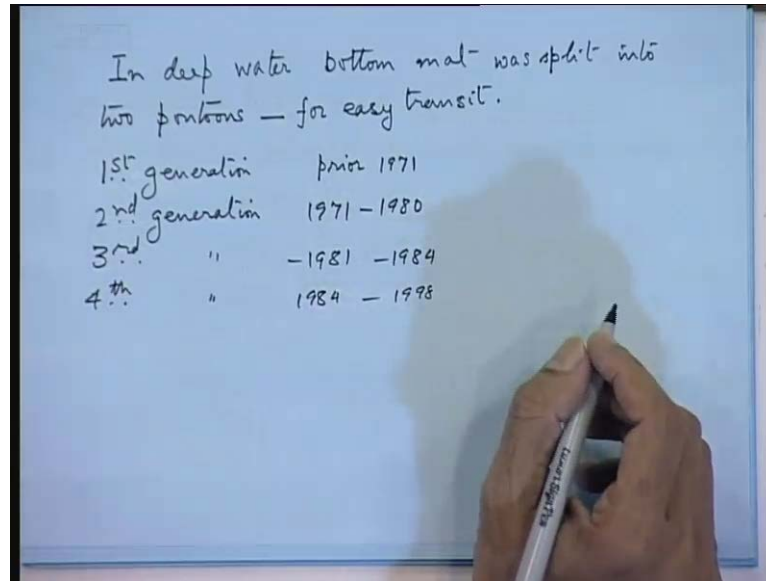 In deep water bottom mat was split into
two pontoons — for easy transit.
1st generation prior 1971
2nd generation 1971 – 1980
3rd " – 1981 – 1984
4th " 1984 – 1998